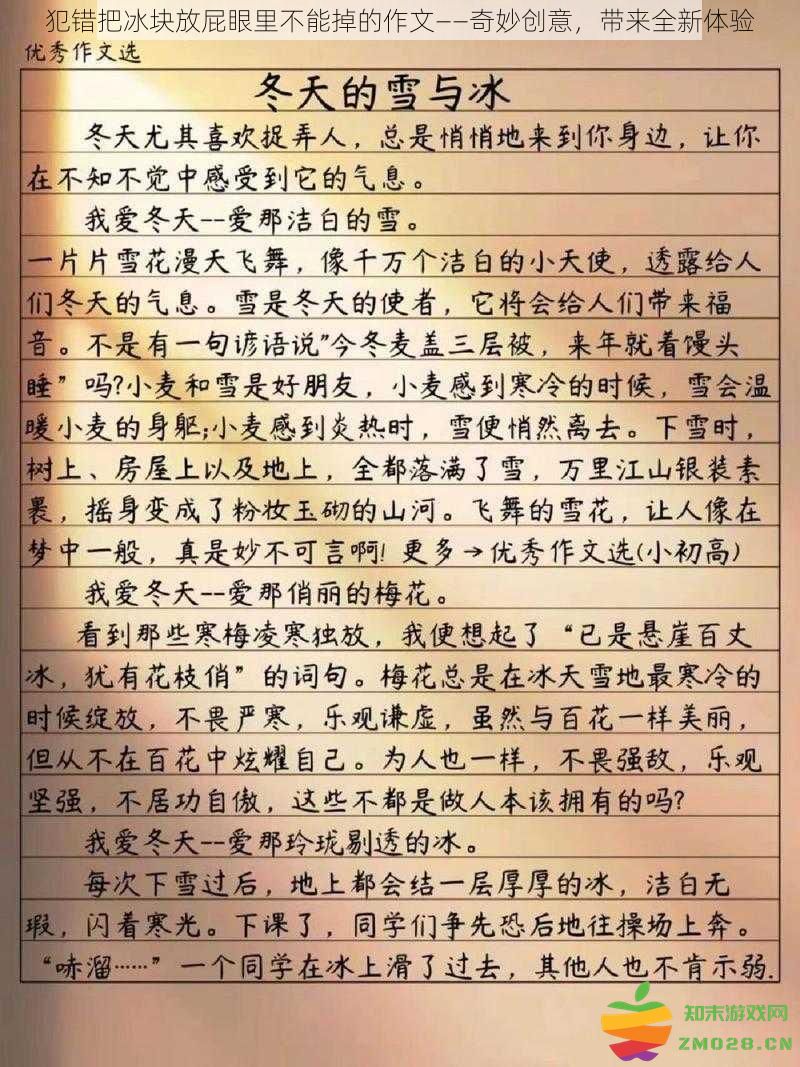 犯错把冰块放屁眼里不能掉的作文——奇妙创意，带来全新体验
优秀作文选
冬天的雪与冰
冬天尤其喜欢捉弄人，总是悄悄地来到你身边，让你
在不知不觉中感受到它的气息。
我爱冬天--爱那洁白的雪。
一片片雪花漫天飞舞，像千万个洁白的小天使，透露给人
们冬天的气息。雪是冬天的使者，它将会给人们带来福
音。不是有一句谚语说"今冬麦盖三层被，来年就着馒头
睡"吗?小麦和雪是好朋友，小麦感到寒冷的时候，雪会温
暖小麦的身躯;小麦感到炎热时，雪便悄然离去。下雪时，
树上、房屋上以及地上，全都落满了雪，万里江山银装素
裹，摇身变成了粉妆玉砌的山河。飞舞的雪花，让人像在
梦中一般，真是妙不可言啊! 更多→优秀作文选(小初高)
我爱冬天--爱那俏丽的梅花。
看到那些寒梅凌寒独放，我便想起了“已是悬崖百丈
冰，犹有花枝俏”的词句。梅花总是在冰天雪地最寒冷的
时候绽放，不畏严寒，乐观谦虚，虽然与百花一样美丽，
但从不在百花中炫耀自己。为人也一样，不畏强敌，乐观
坚强，不居功自傲，这些不都是做人本该拥有的吗?
我爱冬天--爱那玲珑剔透的冰。
每次下雪过后，地上都会结一层厚厚的冰，洁白无
瑕，闪着寒光。下课了，同学们争先恐后地往操场上奔。
“哧溜……”一个同学在冰上滑了过去，其他人也不肯示弱.
知末游戏网
ZM028.CN